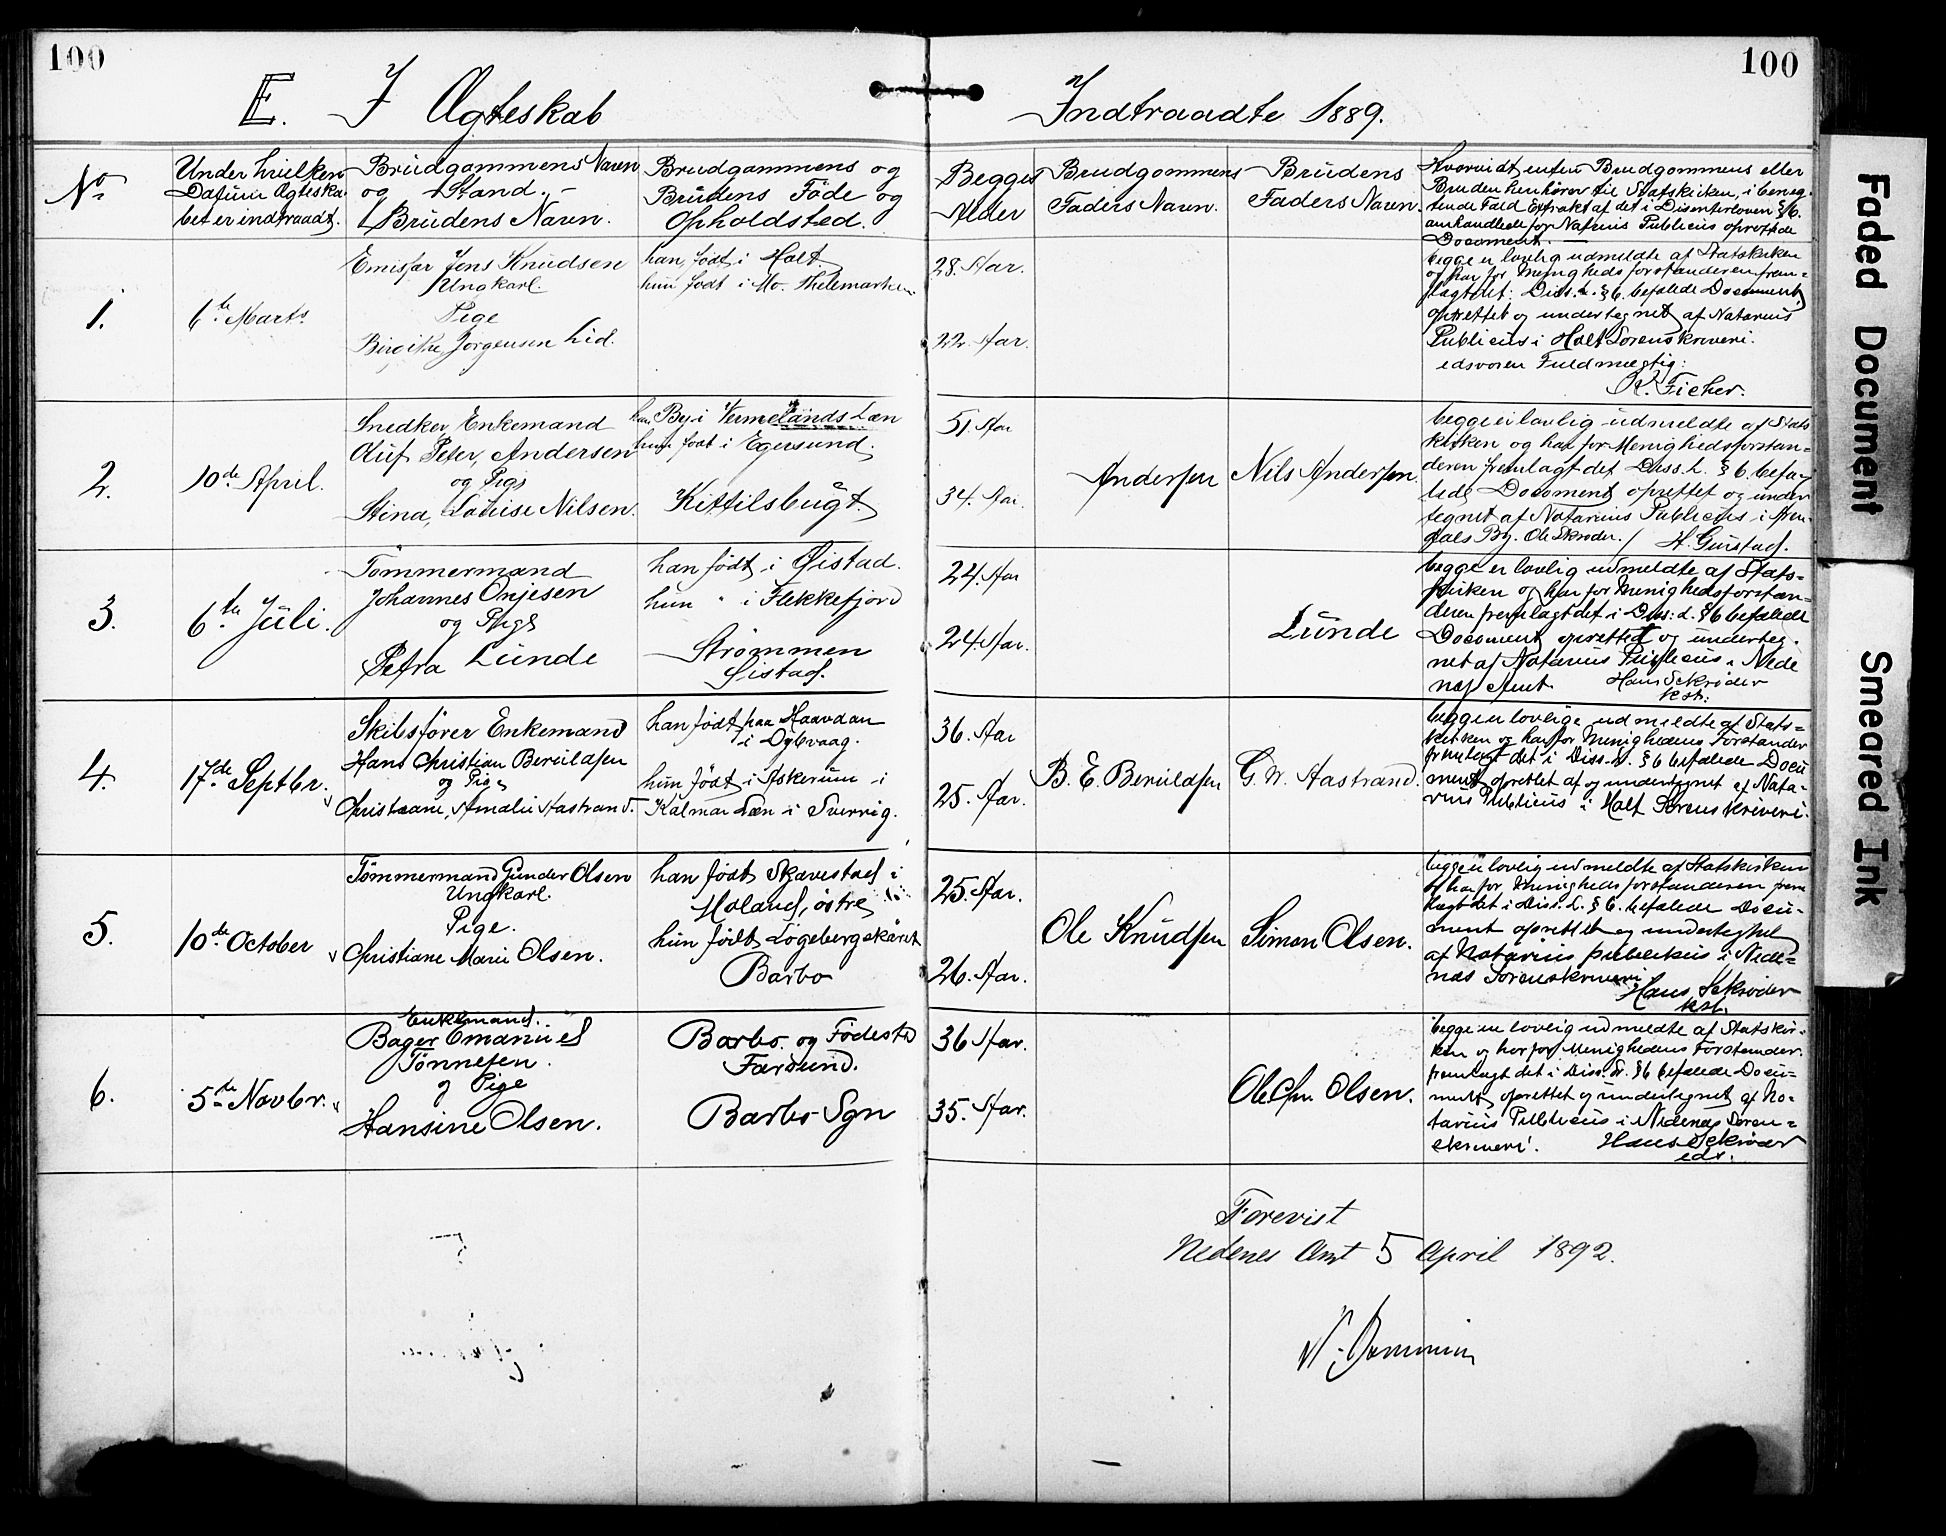 100
E. I Ægteskab
Indtraadte 1889.
100
No
Under hvilken
Datum Ægteska
bet er indtraadt.
Brudgommens Navn
og Stand. -
Brudens Navn.
Brudgommens og
Brudens Föde og
Opholdsted.
Begges
Alder
Brudgommens
Faders Navn.
Brudens
Faders Navn.
Hvorvidt enten Brudgommens eller
Bruden henhörer til Statskirken, i beneg-
tende Fald Extrakt af det i Disenterloven § 6.
omhandlede for Notarius Publicus oprettede
Document.
1.
6te Marts.
Emisær Jens Knudsen
Ungkarl.
Pige
Birgitte Jörgensen Lid.
han, födt i Holt.
hun födt i Mo. Thelemarken
28. Aar.
22. Aar.
begge er lovlig udmeldte af Statskirken
og har for Menigheds forstanderen frem-
lagt det: Diss. L. § 6. befalede Document
oprettet og undertegnet af Notarius
Publicus i Holt Sorenskriveri.
edsvoren Fuldmægtig:
K. Ficher.
2.
10de April.
Snedker Enkemand
Oluf Peter, Andersen
og Pige
Stina, Lovise Nilsen.
han By i Vermelands Læn
hun födt i Egersund.
Kittilsbugt
51. Aar
34. Aar.
Andersen
Nils Andersen.
begge er lovlig udmeldte af Stats
kirken og har for Menighedsforstan-
deren fremlagt det Diss. L. § 6. befa-
lede Document oprettet og under
tegnet af Notarius Publicus i Aren-
dals By. Ole Skröder. / H. Gustad.
3.
6te Juli.
Tömmermand
Johannes Onjesen
og Pige
Petra Lunde
han födt i Öistad.
hun " i Flekkefjord
Strömmen
Öistad.
24. Aar
24. Aar.
Lunde
begge er lovlig udmeldte af Stats-
kirken og har for Menighedsforstan-
deren fremlagt det i Diss: L. § 6 befalede
Document oprettet og underteg-
net af Notarius Publicus i Nede
nes Amt. Hans Schröder
kst.
4.
17de Septbr.
Skibsförer Enkemand
Hans Christian Beruldsen
og Pige
Christiane, Amalie Aastrand.
han födt paa Haavdan
i Dybvaag.
hun födt i Askerum i
Kalmar Læn i Sverrig.
36. Aar
25. Aar.
B. E. Beruldsen
G. W. Aastrand.
begge er lovlige udmeldte af Stats-
kirken og har for Menighedens Forstander
fremlagt det i Diss. L. § 6 befalede Docu
ment oprettet af og undertegnet af Nota-
rius Publicus i Holt Sörenskriveri.
5.
10de October
Tömmermand Gunder Olsen
Ungkarl.
Pige.
Christiane Marie Olsen.
han födt Skjævestad i
Holand, östre
hun födt Lögebergskäret
Barbo
25. Aar.
26. Aar.
Ole Knudsen
Simon Olsen.
begge er lovlig udmeldte af Statskirken
og har for Menigheds forstanderen frem
lagt det i Diss. L. § 6. befalede Docu-
ment oprettet og undertegnet
af Notarius publikus i Nede-
nes Sorenskriveri
Hans Schröder
kst.
6.
5te Novbr.
Enkemand.
Bager Emanuel
Tönnesen.
og Pige
Hansine Olsen.
Barbo. og Födested
Farsund.
Barbo Sgn
36 Aar.
35. Aar.
Ole Chr. Olsen.
begge er lovlig udmeldte af Statskir-
ken og har for Menighedens Forstander
fremlagt det i Diss. L. § 6 befalede Docu-
ment oprettet og undertegnet af No-
tarius Publicus i Nedenes Soren-
skriveri. Hans Schröder
eds.
Forevist
Nedenes Amt 5 April 1892.
Faded Document
Smeared Ink